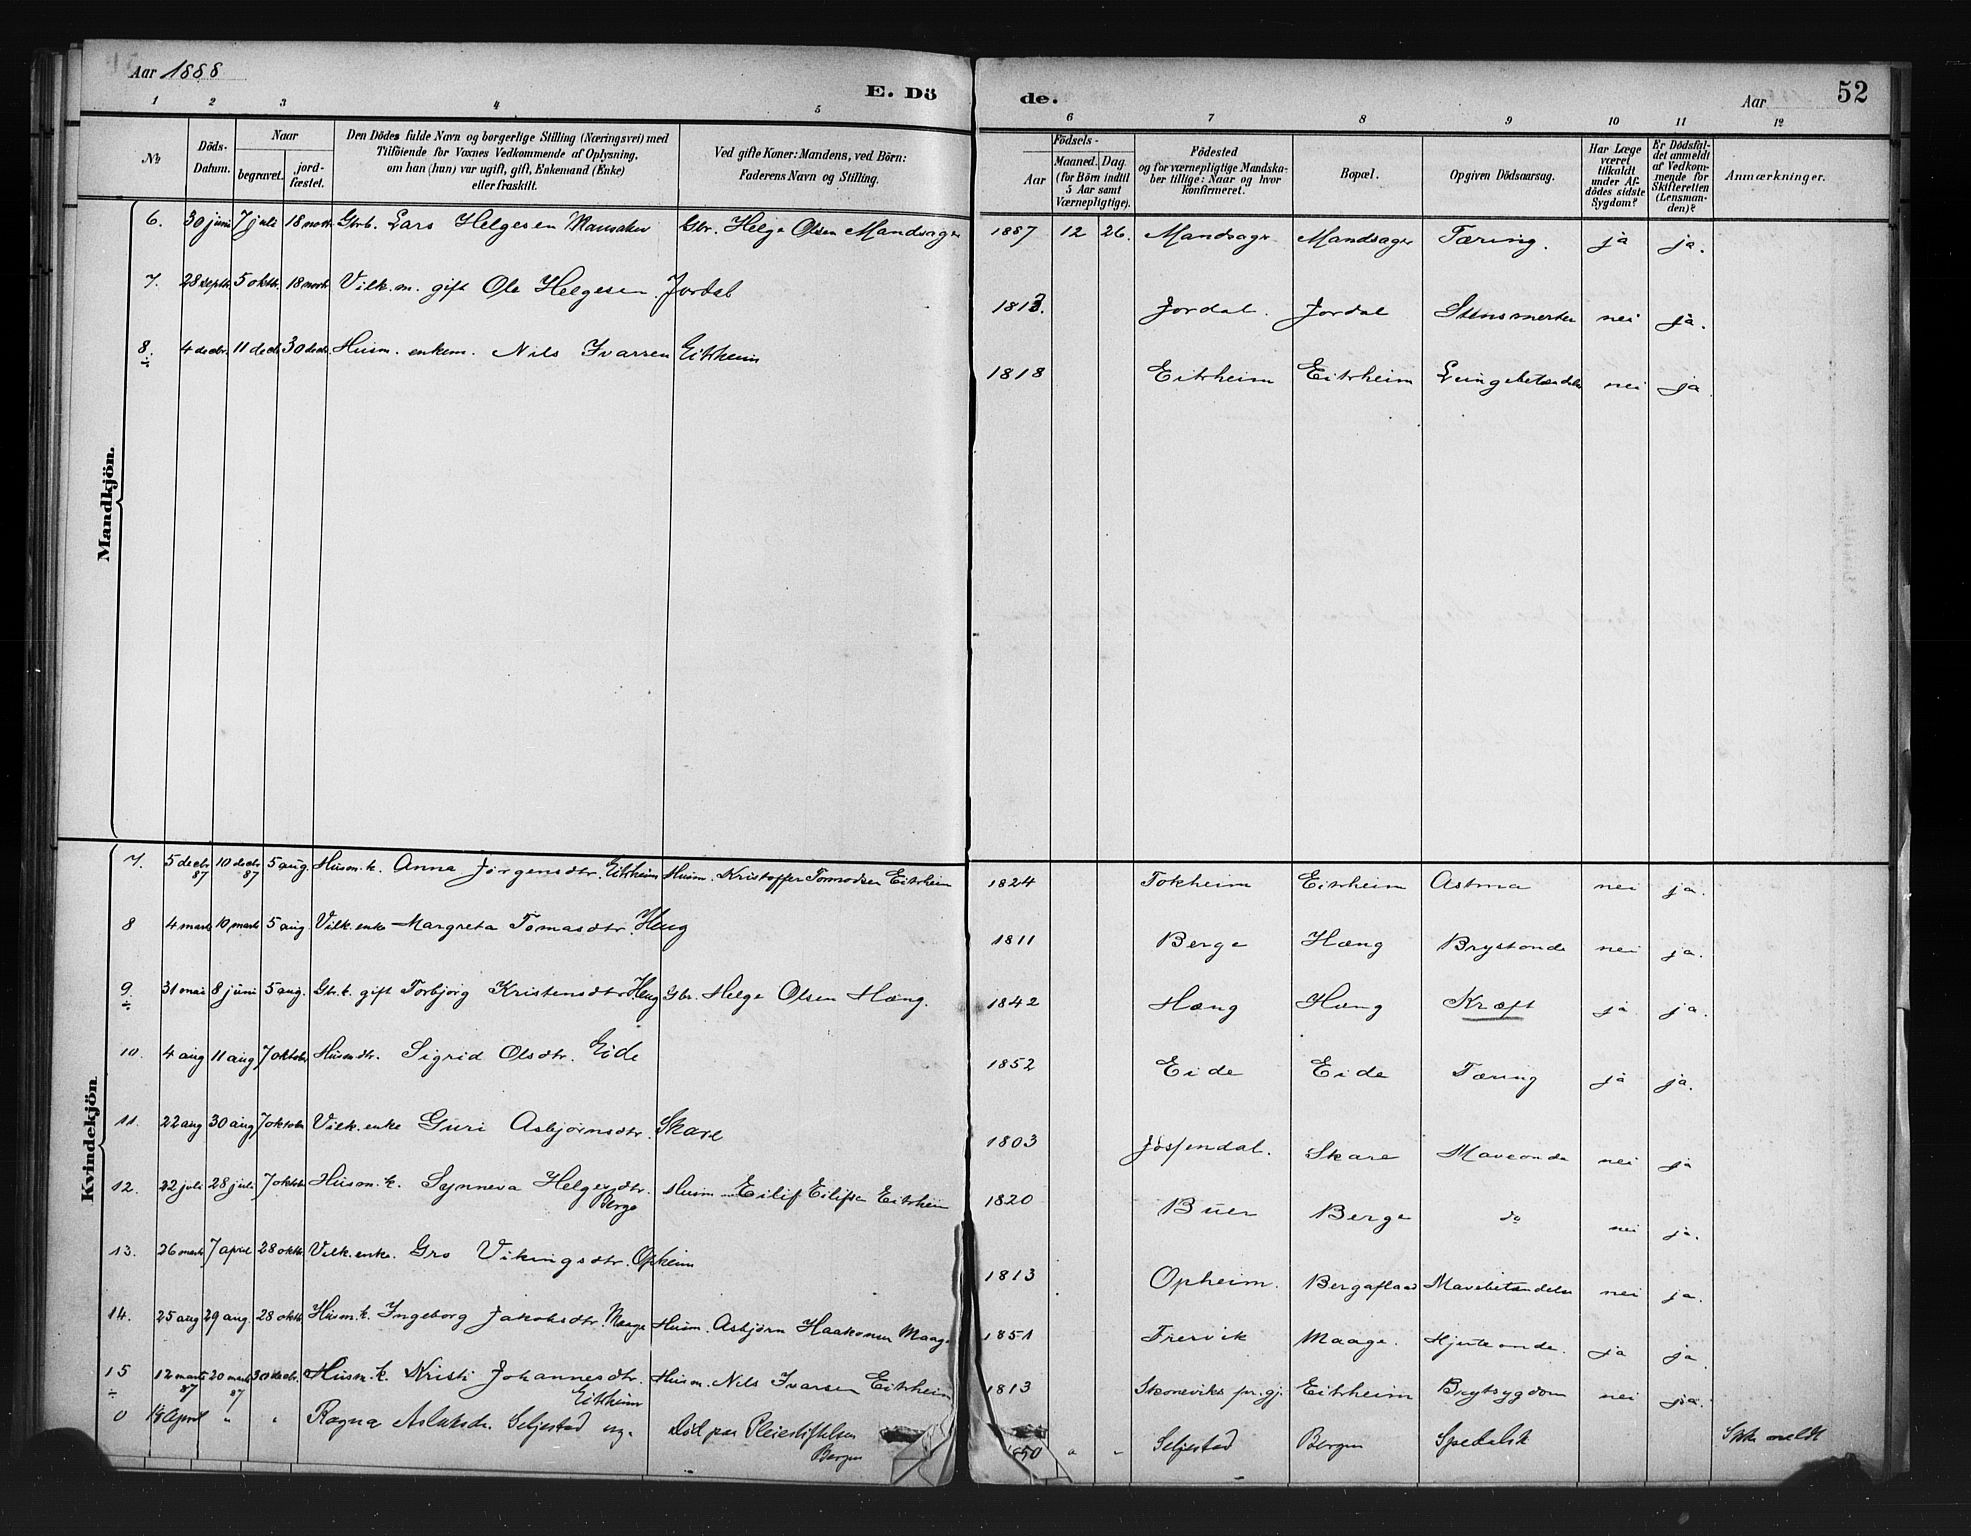 Aar 1888
E. Dö
de.
Aar
52
1 2 3 4 5 6 7 8 9 10 11 12
No
Döds-Datum.
Naar
begravet.
jord-fæstet.
Den Dödes fulde Navn og borgerlige Stilling (Næringsvei) med
Tilföiende for Voxnes Vedkommende af Oplysning,
om han (hun) var ugift, gift, Enkemand (Enke)
eller fraskilt.
Ved gifte Koner: Mandens, ved Börn:
Faderens Navn og Stilling.
Födsels-
Aar
Maaned. Dag
(for Börn indtil
5 Aar samt
Værnepligtige).
Födested
og for værnepligtige Mandska-
ber tillige: Naar og hvor
konfirmeret.
Bopæl.
Opgiven Dödsaarsag.
Har Læge
været
tilkaldt
under Af-
dödes sidste
Sygdom?
Er Dödsfal-
det anmeldt
af Vedkom-
mende for
Skifteretten
(Lensman-
den)?
Anmærkninger.
Mandkjön.
6. 30 juni 7 juli 18 novb. Gbrb. Lars Helgesen Mansaker Gbr. Helge Olsen Mandsager 1887 12 26. Mandsager Mandsager Tæring. ja ja.
7. 28 septb. 5 oktb. 18 novb. Vilk.m. gift Ole Helgesen Jordal 1813. Jordal. Jordal Stensmerter nei ja.
8. 4 decbr. 11 decb. 30 decb. Husm. enkem. Nils Ivarsen Eitrheim 1818 Eitrheim Eitrheim Lungebetændelse nei ja
Kvindekjön.
7. 5 decbr 87 10 decbr 87 5 aug. Husm.k. Anna Jørgensdtr. Eitrheim Husm. Kristoffer Tormodsen Eitrheim 1824 Tokheim Eitrheim Astma nei ja.
8 4 marts 10 marts 5 aug. Vilk.enke Margreta Tomasdtr. Hæng 1811 Berge Hæng Brystonde nei ja.
9 31 mai 8 juni 5 aug. Gbr.k. gift Torbjørg Kristensdtr Hæng Gbr. Helge Olsen Hæng. 1842 Hæng Hæng Kræft ja ja.
10. 4 aug 11 aug 7 oktobr. Husmdtr. Sigrid Olsdtr. Eide 1852 Eide Eide Tæring ja ja.
11. 22 aug 30 aug 7 oktobr Vilk.enke Guri Asbjørnsdtr. Skare 1803 Jøsendal. Skare Maveonde nei ja
12. 22 juli 28 juli 7 oktbr Husm.k. Synneva Helgesdtr. Berge Husm. Eilif Eilifsen Eitrheim 1820 Buer Berge do nei ja.
13. 26 marts 7 april 28 oktb. Vilk.enke. Gro Vikingsdtr. Opheim 1813 Opheim. Bergaflaad Mavebetændelse nei ja.
14. 25 aug 29 aug. 28 oktb. Husm.k. Ingeborg Jakobsdtr. Maage Husm. Asbjørn Haakonsen Maage 1851 Frervik Maage. Hjerteonde. ja ja.
15 12 marts 87 20 marts 87 30 decbr. Husm.k. Kristi Johannesdtr. Eitrheim Husm. Nils Ivarsen Eitrheim 1813 Skoneviks pr.gj. Eitrheim Brystsygdom nei ja.
0 14 April " " Ragna Aslaksdr. Seljestad ug. Død paa Pleiestiftelsen Bergen 1850 " " Seljestad Bergen Spedalsk Ikke meldt